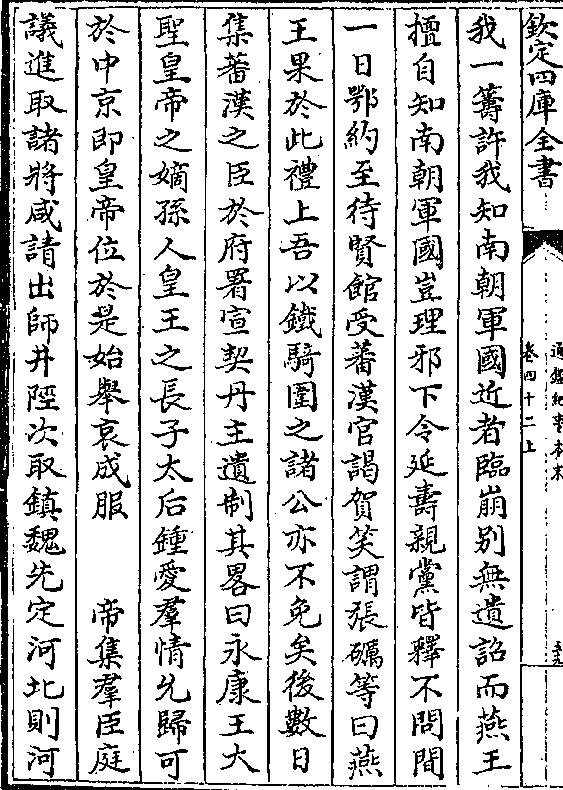 欽定四庫全書
通鑑紀事本末
卷四十二上
我一籌許我知南朝軍國近者臨崩別無遺詔而燕王
擅自知南朝軍國豈理邪下令延壽親黨皆釋不問間
一日鄂約至待賢館受蕃漢官謁賀笑謂張礪等曰燕
王果於此禮上吾以鐵騎圍之諸公亦不免矣後數日
集蕃漢之臣於府署宣契丹主遺制其畧曰永康王大
聖皇帝之嫡孫人皇王之長子太后鍾愛羣情允歸可
於中京即皇帝位於是始舉哀成服　　帝集羣臣庭
議進取諸將咸請出師井陘次取鎮魏先定河北則河